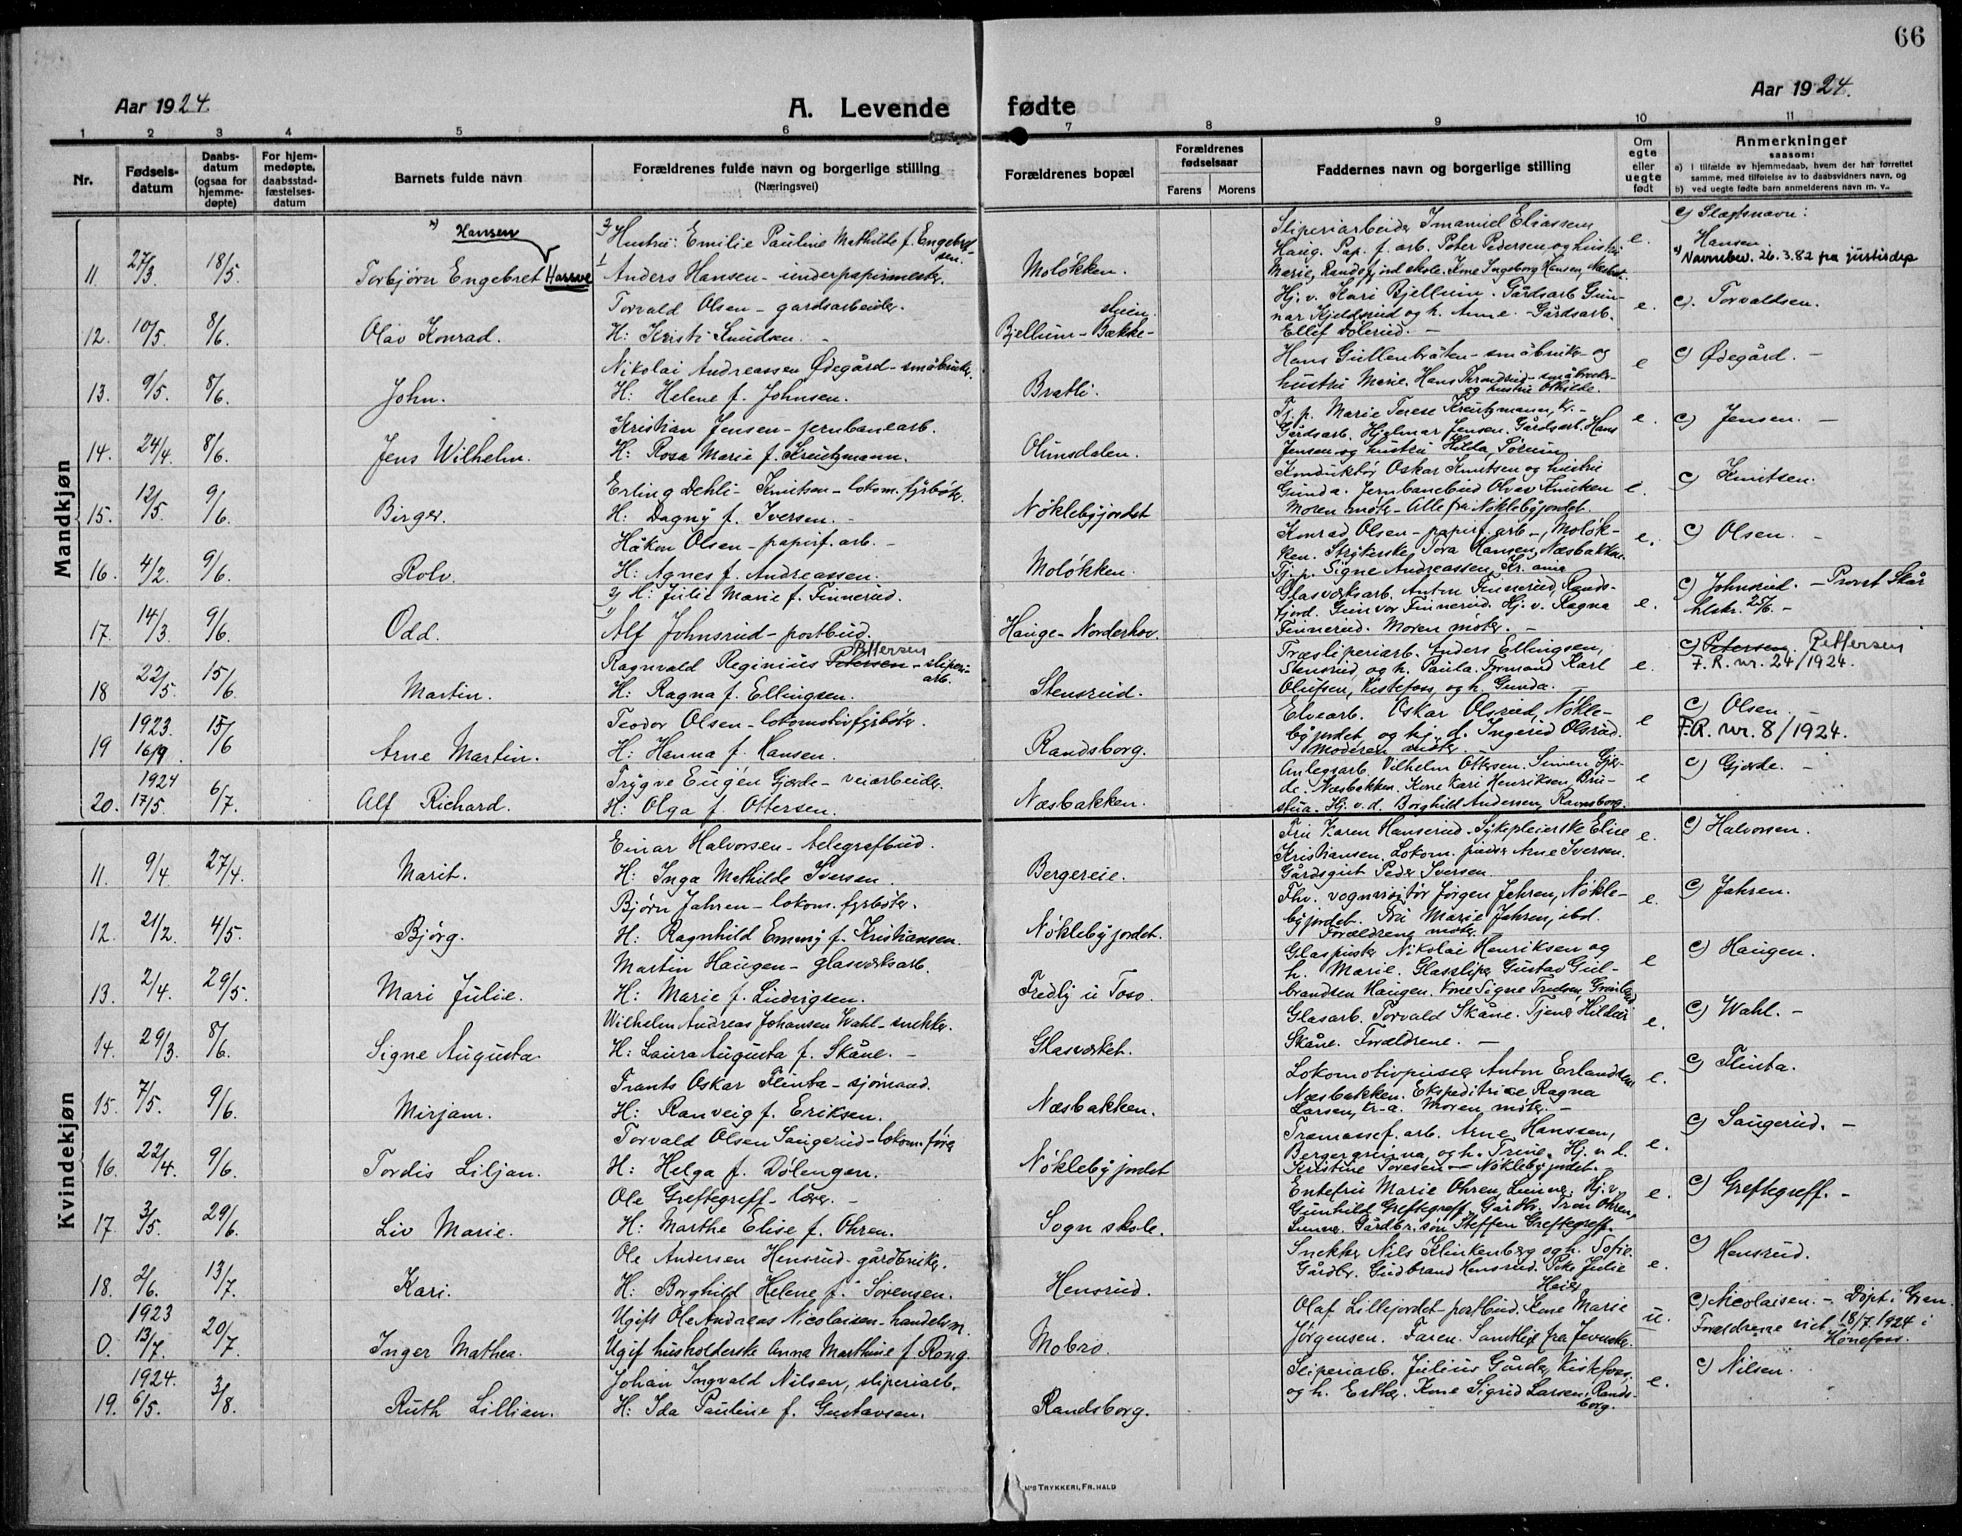 66
Aar 1924.
A. Levende fødte
Aar 1924.
1 2 3 4 5 6 7 8 9 10 11
Nr.
Fødsels-
datum
Daabs-
datum
(ogsaa for
hjemme-
døpte)
For hjem-
medøpte,
daabsstad-
fæstelses-
datum
Barnets fulde navn
Forældrenes fulde navn og borgerlige stilling
(Næringsvei)
Forældrenes bopæl
Forældrenes
fødselsaar
Farens Morens
Faddernes navn og borgerlig stilling
Om
egte
eller
uegte
født
Anmerkninger
saasom:
a) i tilfælde av hjemmedaab, hvem der har forrettet
samme, med tilføielse av to daabsvidners navn, og
b) ved uegte fødte barn anmelderens navn m. v.
Mandkjøn
11. 27/3 18/5
x) Hansen
Torbjørn Engebret Harsve
2) Hustru: Emilie Pauline Mathilde f. Engebret-
sen.
1 Anders Hansen - underpapirmester.
Moløkken.
Sliperiarbeider Imanuel Eliassen,
Haug. Pap. f. arb. Peter Pedersen og hustru
Marie, Randsfjord skole. Kone Ingeborg Hansen,
e.
c) Slegtsnavn:
Hansen
x) Navnebev. 26.3.82 fra justisdep
12. 10/5 8/6.
Olav Konrad.
Torvald Olsen - gardsarbeider.
H: Kristi Knudsen. -
Bjellum - Bække-
stuen.
Hj. v. Kari Bjellum. Gårdsarb. Gun-
nar Kjeldsrud og h. Anne. - Gårdsarb.
Ellef Dølerud. -
e.
c). Torvaldsen.
13. 9/5. 8/6.
John.
Nikolai Andreassen Ødegård - småbruker.
H: Helene f. Johnsen.
Bratli.
Hans Gullenbråten - småbruker og
hustru Marie. Hans Trondsrud - småbruker
og hustru Othilde.
e
c) Ødegård. -
14. 24/4. 8/6.
Jens Wilhelm.
Kristian Jensen - jernbanearb.
H: Rosa Marie f. Kreutzmann.
Olimsdalen.
Tj. p. Marie Terese Kreutzmann, Kr. -
Gårdsarb. Hjelmar Jensen. Gårdsarb. Hans
Jensen og hustru Hilda,
e.
c) Jensen. -
15. 12/5. 9/6.
Birger.
Erling Dehli - Knutsen - lokom. fyrbøter.
H: Dagny f. Iversen. -
Nøklebyjordet
Konduktør Oskar Knutsen og hustru
Gunda. Jernbanebud Olvar Knutsen
Moren møter - Alle fra Nøklebyjordet.
e.
c) Knutsen.
16. 4/2. 9/6.
Rolv.
Håkon Olsen - papirf. arb. -
H: Agnes f. Andreassen.
Moløkken.
Konrad Olsen - papirf. arb -, Moløk-
ken. Strykerske Tora Hansen, Næsbakken.
Tj. p. Signe Andreassen, Kr.ania
e.
c) Olsen. -
17. 14/3. 9/6.
Odd.
2) H: Julie Marie f. Finnerud.
1) Alf Johnsrud - postbud.
Hauge - Norderhov.
Glasværksarb. Anton Finnerud, Rands-
fjord. Gunvor Finnerud. Hj. v. Ragna
Finnerud. Moren møter. -
e.
c) Johnsrud. - Provst Skår
tilskr. 25/6. -
18 22/5 15/6.
Martin.
Ragnvald Reginius Petersen Pettersen - sliperi-
arb.
H: Ragna f. Ellingsen.
Stensrud.
Træsliperiarb. Anders Ellingsen,
Stensrud, og h. Paula. Formand Karl
Olufsen, Kistefoss, og h. Gunda. -
e.
c) Petersen. Pettersen
F.R. nr. 24/1924.
19 1923. 16/9. 15/6
Arne Martin.
Teodor Olsen - lokomotivfyrbøter.
H: Hanna f. Hansen.
Randsborg.
Elvearb. Oskar Olsrud, Nøkle-
byjordet og hj. d. Ingerid Olsrud.
Moderen møter.
e
c) Olsen. -
F.R. nr. 8/1924.
20. 1924 17/5. 6/7.
Alf Richard.
Trygve Eugén Gjerde - veiarbeider.
H: Olga f. Ottersen.
Næsbakken.
Anlegsarb. Vilhelm Ottersen. Simen Gjer-
de. Næsbakken. Kone Kari Henriksen, Bru-
stua. Hj. v. d. Borghild Andersen, Ravnsborg.
e
c) Gjerde. -
Kvindekjøn
11. 9/4 27/4.
Marit.
Einar Halvorsen - telegrafbud.
H: Inga Mathilde Iversen.
Bergereie.
Fru Karen Hanserud. Sykepleierske Elise
Kristiansen. Lokom. pudser Arne Iversen.
Gårdsgut Peder Iversen.
e.
c) Halvorsen.
12. 21/2. 4/5.
Bjørg.
Bjørn Jahren - lokom. fyrbøter.
H: Ragnhild Emmy f. Kristiansen.
Nøklebyjordet.
Fhv. vognvisitør Jørgen Jahren, Nøkle-
byjordet. Fru Marie Jahren, ibd.
Forældrene møter. -
e.
c) Jahren.
13. 2/4. 29/5.
Mari Julie.
Martin Haugen - glasværksarb.
H: Marie f. Ludvigsen.
Fredly u Toso.
Glaspuster Nikolai Henriksen og
h. Marie. Glassliper Gustav Gul-
brandsen Haugen. Kone Signe Trulsen, Grønland
e
c) Haugen.
14. 29/3. 8/6.
Signe Augusta.
Wilhelm Andreas Johansen Wahl - snekker.
H: Laura Augusta f. Skåne. -
Glasværket.
Glasarb. Torvald Skåne. Tjener Hildur
Skåne. Forældrene. -
e.
c) Wahl. -
15. 7/5. 9/6.
Mirjam.
Frants Oskar Flinta - sjømand.
H: Ranveig f. Eriksen.
Næsbakken.
Lokomotivpudser Anton Erlandsen
Næsbakken. Ekspeditrice Ragna
Larsen, Kr-a. Moren møter. -
e.
c) Flinta.
16. 22/4. 9/6.
Tordis Liljan.
Torvald Olsen Saugerud - lokom. fører
H: Helga f. Dølengen.
Nøklebyjordet
Træmassef. arb. Arne Hanssen,
Bergergrinna, og h. Trine. Hj. v. d.
Kristine Toresen - Nøklebyjordet. -
e.
c) Saugerud. -
17. 3/5. 29/6.
Liv Marie.
Ole Greftegreff - lærer. -
H: Marthe Elise f. Ohren.
Sogn skole.
Enkefru Marie Ohren, Lunner. Hj. v.
Gunhild Greftegreff. Gårdbr. Tron Ohren,
Lunner. Gårdbr. søn Steffen Greftegreff.
e.
c) Greftegreff. -
18. 2/6. 13/7.
Kari.
Ole Andersen Hensrud - gårdbruker.
H: Borghild Helene f. Sørensen.
Hensrud.
Snekker Nils Klinkenberg og h. Tofie.
Gårdbr. Gudbrand Hensrud. Pike Julie
Heier
e.
c) Hensrud.
0. 1923 13/7. 20/7.
Inger Mathea.
Ugift Ole Andreas Nicolaisen - handelsm.
Ugif husholderske Anna Marthine f. Rong.
Mobro.
Olaf Lillejordet postbud. Kone Marie
Jørgensen. Faren. Samtlige fra Jevnaker.
u.
c) Nicolaisen. - Døpt i Gran.
Forældrene viet 18/7 1924 i
Hønefoss.
19. 1924. 6/5. 3/8.
Ruth Lillian.
Johan Ingvald Nilsen, sliperiarb.
H: Ida Pauline f. Gustavsen.
Randsborg.
Sliperiarb. Julius Gårder, Kistefoss,
og h. Esther. Kone Sigrid Larsen, Rands-
borg.
e.
c) Nilsen.
TRYKKERI, FR.HALD